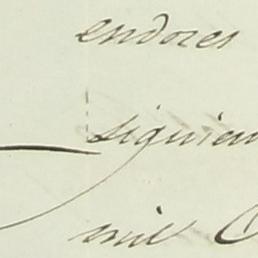 endores
siguien
mil